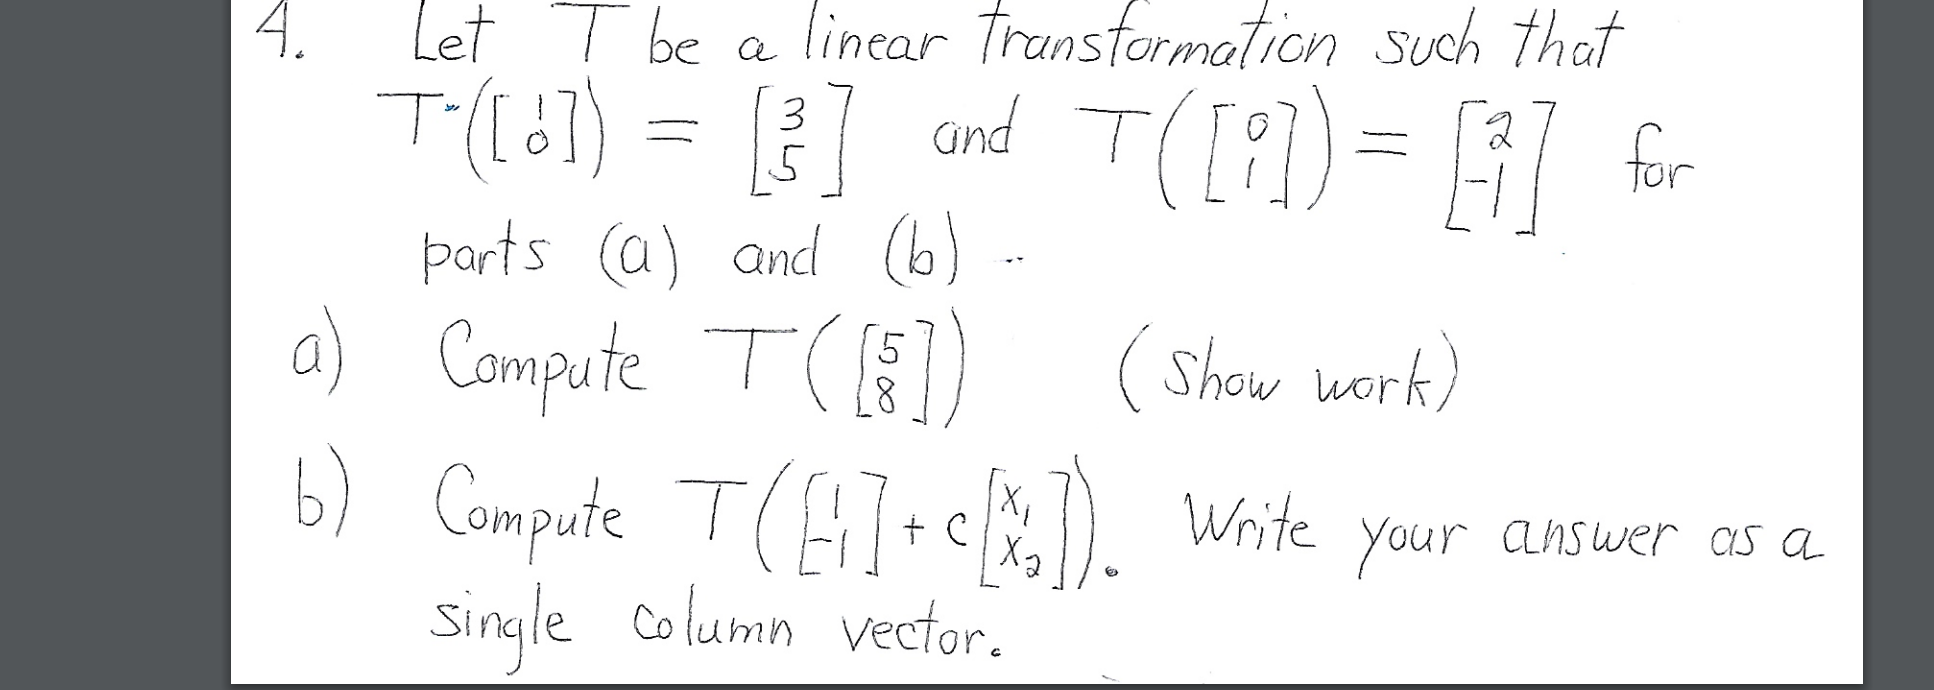 4. Let T be a linear transformation such that
T([1 0]) = [3 5] and T([0 1]) = [2 -1] for
parts (a) and (b)
a) Compute T([5 8]) (Show work)
b) Compute T([1 -1] + c[x₁ x₂]). Write your answer as a
single column vector.